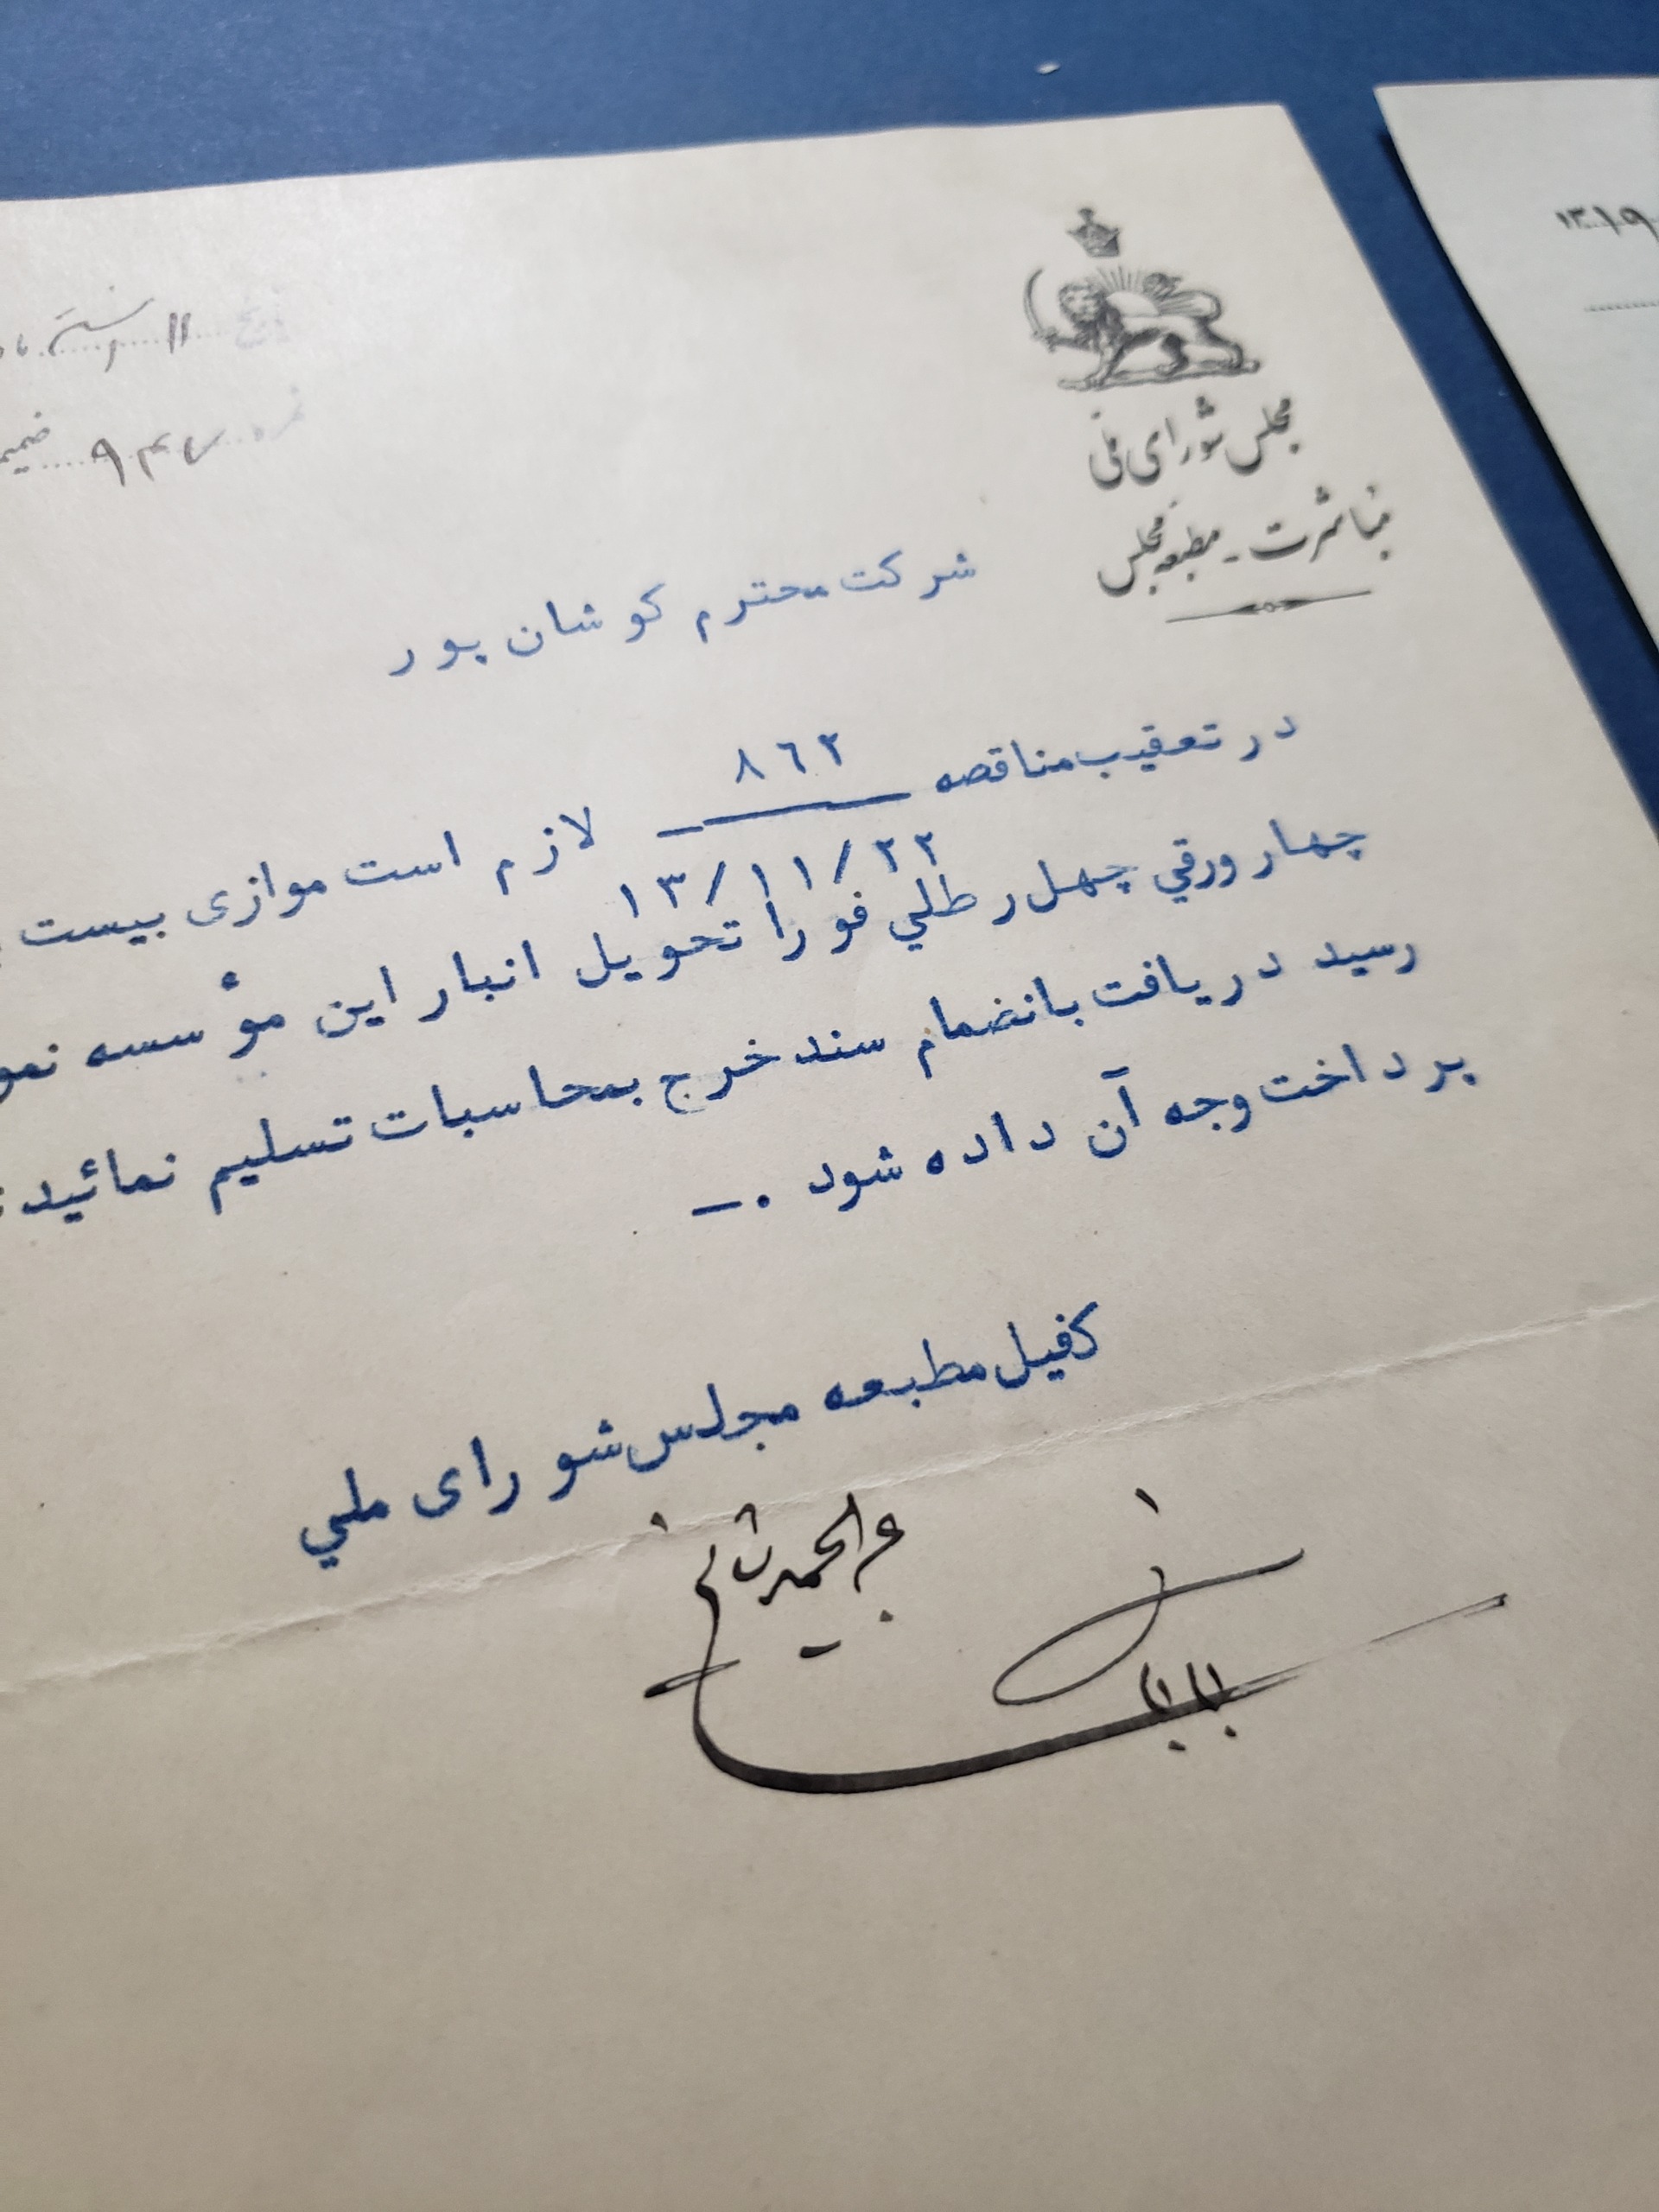 مجلس شورای ملی
مباشرت ـ مطبعه مجلس
۱۱
نمره ۹۴۷
شرکت محترم کوشان پور
در تعقیب مناقصه ۸٦۲ لازم است موازی بیست
۱۳/۱۱/۲۲
چهار ورقي چهل رطلي فورا تحویل انبار این مؤسسه
رسید دریافت بانضمام سند خرج بمحاسبات تسلیم نمائید
پرداخت وجه آن داده شود .ـ
کفیل مطبعه مجلس شورای ملي
۱۳۱۹